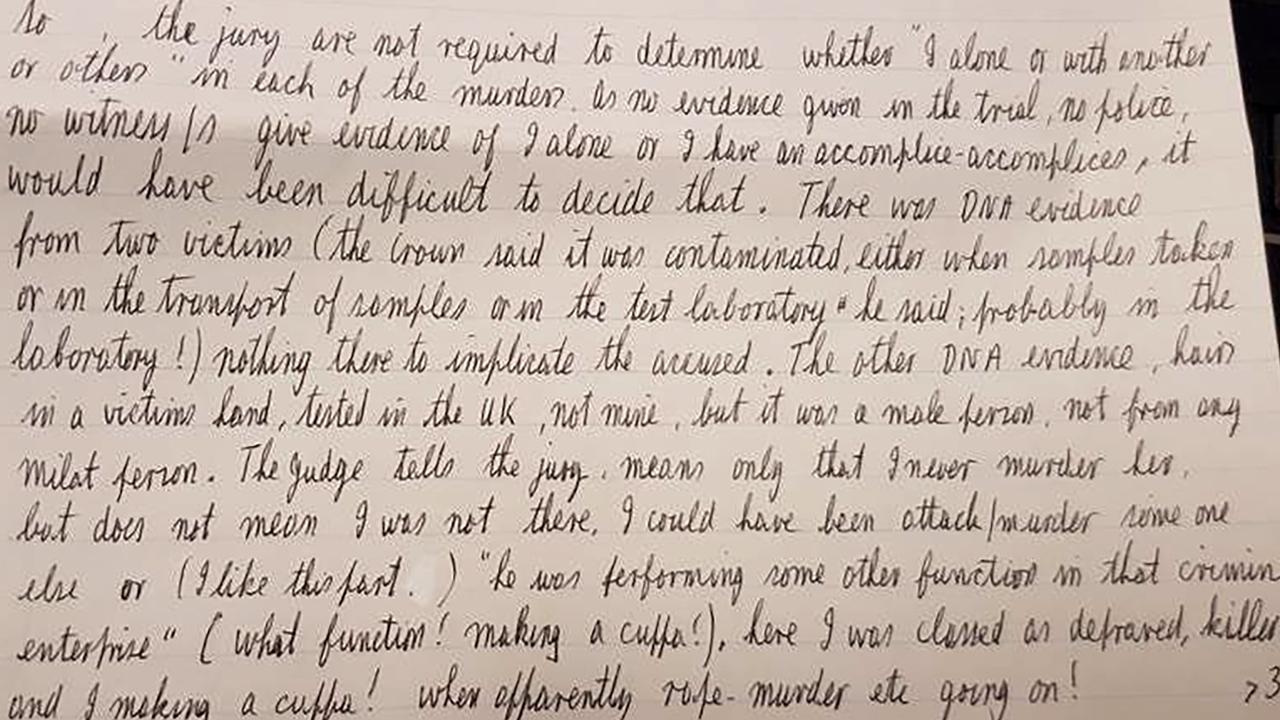 so , the jury are not required to determine whether "I alone or with another
or others" in each of the murders. As no evidence given in the trial, no police,
no witness/s give evidence of I alone or I have an accomplice-accomplices, it
would have been difficult to decide that. There was DNA evidence
from two victims (the Crown said it was contaminated, either when samples taken
or in the transport of samples or in the test laboratory" he said; probably in the
laboratory!) nothing there to implicate the accused. The other DNA evidence, hairs
in a victims hand, tested in the UK, not mine, but it was a male person, not from any
Milat person. The Judge tells the jury, means only that I never murder her,
but does not mean I was not there, I could have been attack/murder some one
else or (I like this part. ) "he was performing some other function in that crimin
enterprise" (what function! making a cuppa!), here I was classed as depraved, killer
and I making a cuppa! when apparently rape-murder etc going on! >3